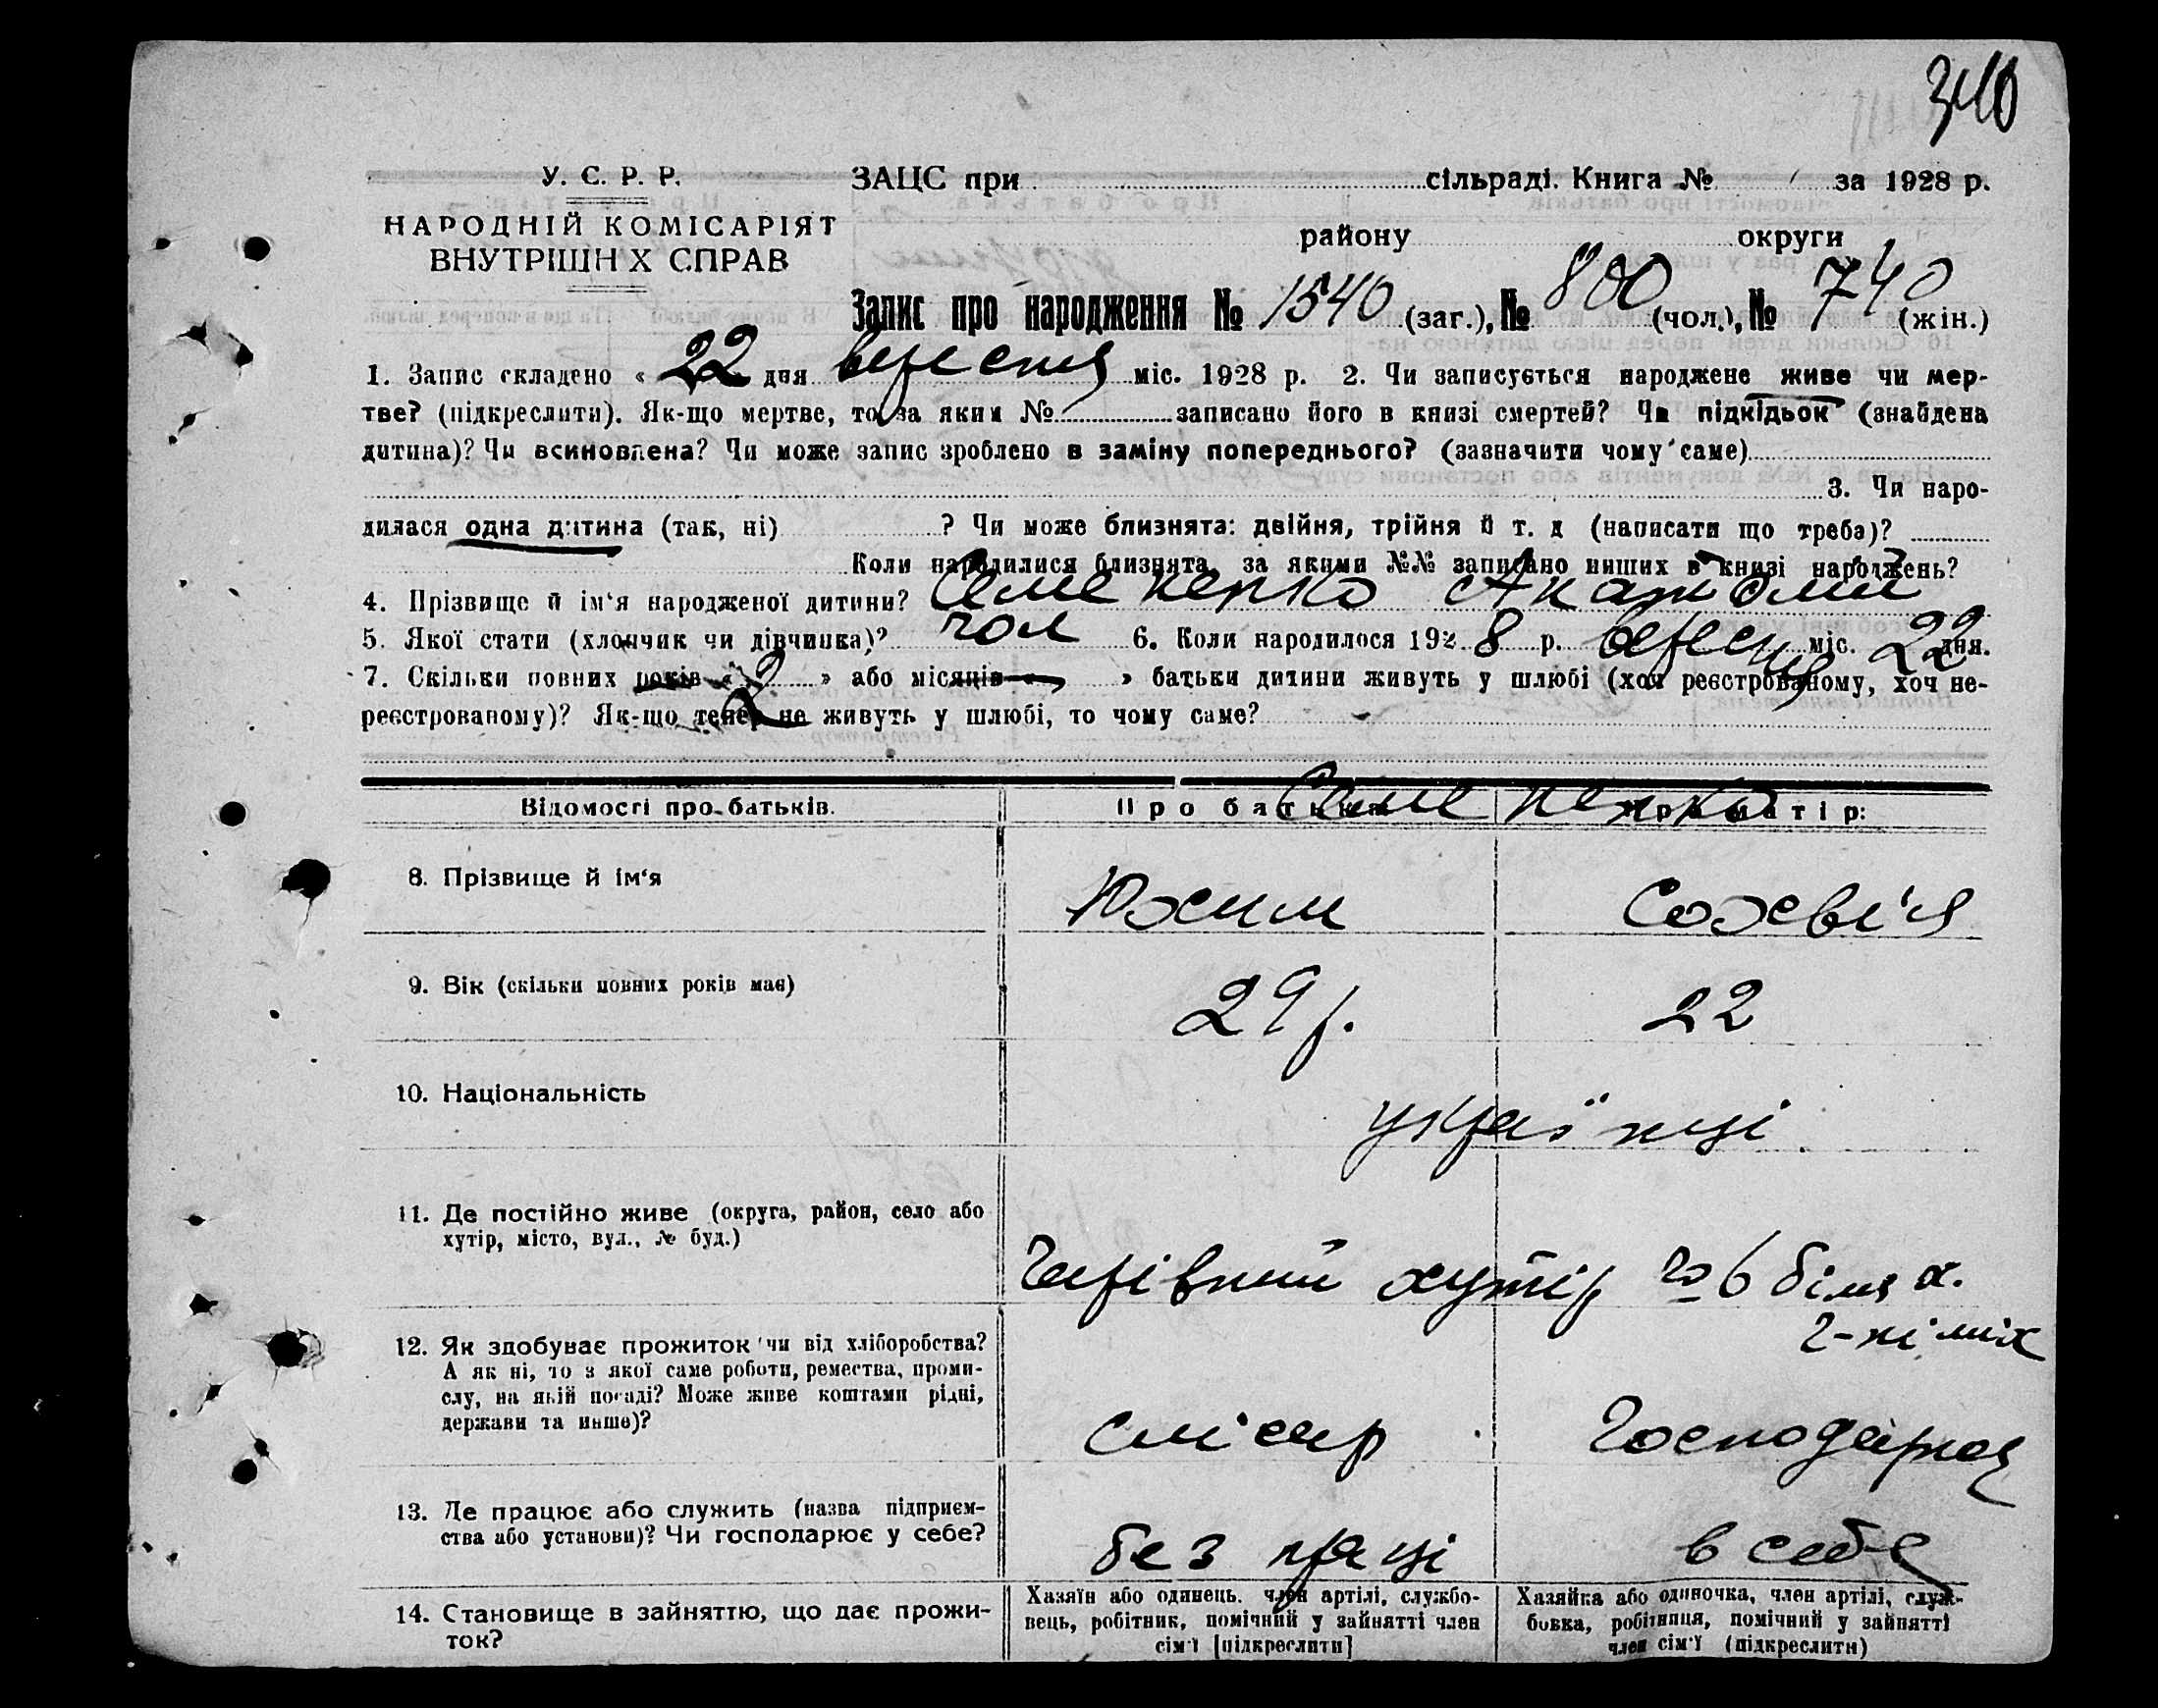 340
У. С. Р. Р.
НАРОДНІЙ КОМІСАРІЯТ
ВНУТРІШН Х СПРАВ
ЗАЦС при сільраді. Книга № за 1928 р.
району округи
Запис про народження № 1540 (заг.), № 800 (чол.), № 740 (жін.)
1. Запис складено « 22 дня вересня міс. 1928 р. 2. Чи записується народжене живе чи мер-
тве? (підкреслити). Як-що мертве, то за яким № записано його в книзі смертей? Чи підкідьок (знайдена
дитина)? Чи всиновлена? Чи може запис зроблено в заміну попереднього? (зазначити чому саме)
3. Чи наро-
дилася одна дитина (так, ні) ? Чи може близнята: двійня, трійня й т. д (написати що треба)?
Коли народилися близнята, за якими №№ записано инших в книзі народжень?
4. Прізвище й ім‘я народженої дитини? Семененко
5. Якої стати (хлопчик чи дівчинка)? чол 6. Коли народилося 192 8 р. вересня міс. 22 дня.
7. Скільки повних років « 2 » або місяців « » батьки дитини живуть у шлюбі (хоч реєстрованому, хоч не-
реєстрованому)? Як-що тепер не живуть у шлюбі, то чому саме?
Відомості про батьків. Про батька: Про матір:
Семененко
8. Прізвище й ім‘я Юхим
9. Вік (скільки повних років має) 29 р. 22
10. Національність українці
11. Де постійно живе (округа, район, село або
хутір, місто, вул., № буд.)
хутір № 6 біля х.
12. Як здобуває прожиток чи від хліборобства?
А як ні, то з якої саме роботи, ремества, проми-
слу, на якій посаді? Може живе коштами рідні,
держави та инше)?
слюсар Господарка
13. Де працює або служить (назва підприєм-
ства або установи)? Чи господарює у себе?
без праці в себе
14. Становище в зайняттю, що дає прожи-
ток?
Хазяїн або одинець. член артілі, службо-
вець, робітник, помічний у зайнятті член
сім‘ї [підкреслити]
Хазяйка або одиночка, член артілі, служ-
бовка, робітниця, помічний у зайнятті
член сім‘ї (підкреслити)